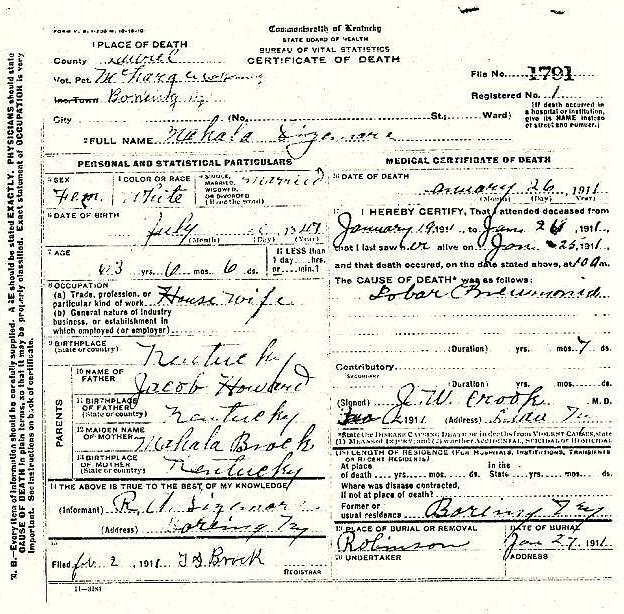 FORM V. S. 1-200 M. 10-18-10
Commonwealth of Kentucky
STATE BOARD OF HEALTH
BUREAU OF VITAL STATISTICS
CERTIFICATE OF DEATH
1 PLACE OF DEATH
County Laurel
Vot. Pct. McHargue
File No. 1791
Inc. Town Boreing Ky
Registered No. 1
City (No. St.; Ward)
(If death occurred in a hospital or institution, give its NAME instead of street and number.)
2 FULL NAME Mahala Sizemore
PERSONAL AND STATISTICAL PARTICULARS
3 SEX
Fem
4 COLOR OR RACE
White
5 SINGLE, MARRIED, WIDOWED, OR DIVORCED (Write the word)
Married
6 DATE OF BIRTH
July 1847
(Month) (Day) (Year)
7 AGE
63 yrs. 6 mos. 6 ds.
If LESS than 1 day ... hrs. or ... min.?
8 OCCUPATION
(a) Trade, profession, or particular kind of work House wife
(b) General nature of industry business, or establishment in which employed (or employer)
9 BIRTHPLACE
(State or country) Kentucky
PARENTS
10 NAME OF FATHER Jacob Howard
11 BIRTHPLACE OF FATHER
(State or country) Kentucky
12 MAIDEN NAME OF MOTHER Mahala Brock
13 BIRTHPLACE OF MOTHER
(State or country) Kentucky
14 THE ABOVE IS TRUE TO THE BEST OF MY KNOWLEDGE
(Informant) R. A. Sizemore
(Address) Boreing Ky
15
Filed feb 2 1911 T D Brock
REGISTRAR
11-3184
MEDICAL CERTIFICATE OF DEATH
16 DATE OF DEATH
January 26 1911
(Month) (Day) (Year)
17 I HEREBY CERTIFY, That I attended deceased from
January 19 1911 to Jan 26 1911,
that I last saw her alive on Jan 25 1911,
and that death occured, on the date stated above, at 10 a m.
The CAUSE OF DEATH* was as follows:
Lobar Pneumonia
(Duration) yrs. mos. 7 ds.
Contributory
SECONDARY
(Duration) yrs. mos. ds.
(Signed) J. W. Crook M. D.
1911 (Address)
*State the DISEASE CAUSING DEATH or in deaths from VIOLENT CAUSES, state (1) MEANS OF INJURY; and (2) whether ACCIDENTAL, SUICIDAL or HOMICIDAL
18 LENGTH OF RESIDENCE (FOR HOSPITALS, INSTITUTIONS, TRANSIENTS OR RECENT RESIDENTS)
At place of death yrs. mos. ds. In the State yrs. mos. ds.
Where was disease contracted, if not at place of death?
Former or usual residence Boreing Ky
19 PLACE OF BURIAL OR REMOVAL
Robinson
DATE OF BURIAL
Jan 27 1911
20 UNDERTAKER
ADDRESS
N. B.—Every item of information should be carefully supplied. AGE should be stated EXACTLY. PHYSICIANS should state
CAUSE OF DEATH in plain terms, so that it may be properly classified. Exact statement of OCCUPATION is very
important. See instructions on back of certificate.